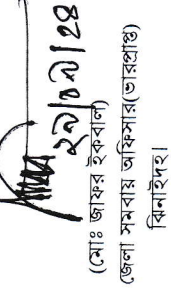 ২৯/০৯/২৪
(মোঃ জাফর ইকবাল)
জেলা সমবায় অফিসার(ভারপ্রাপ্ত)
ঝিনাইদহ।